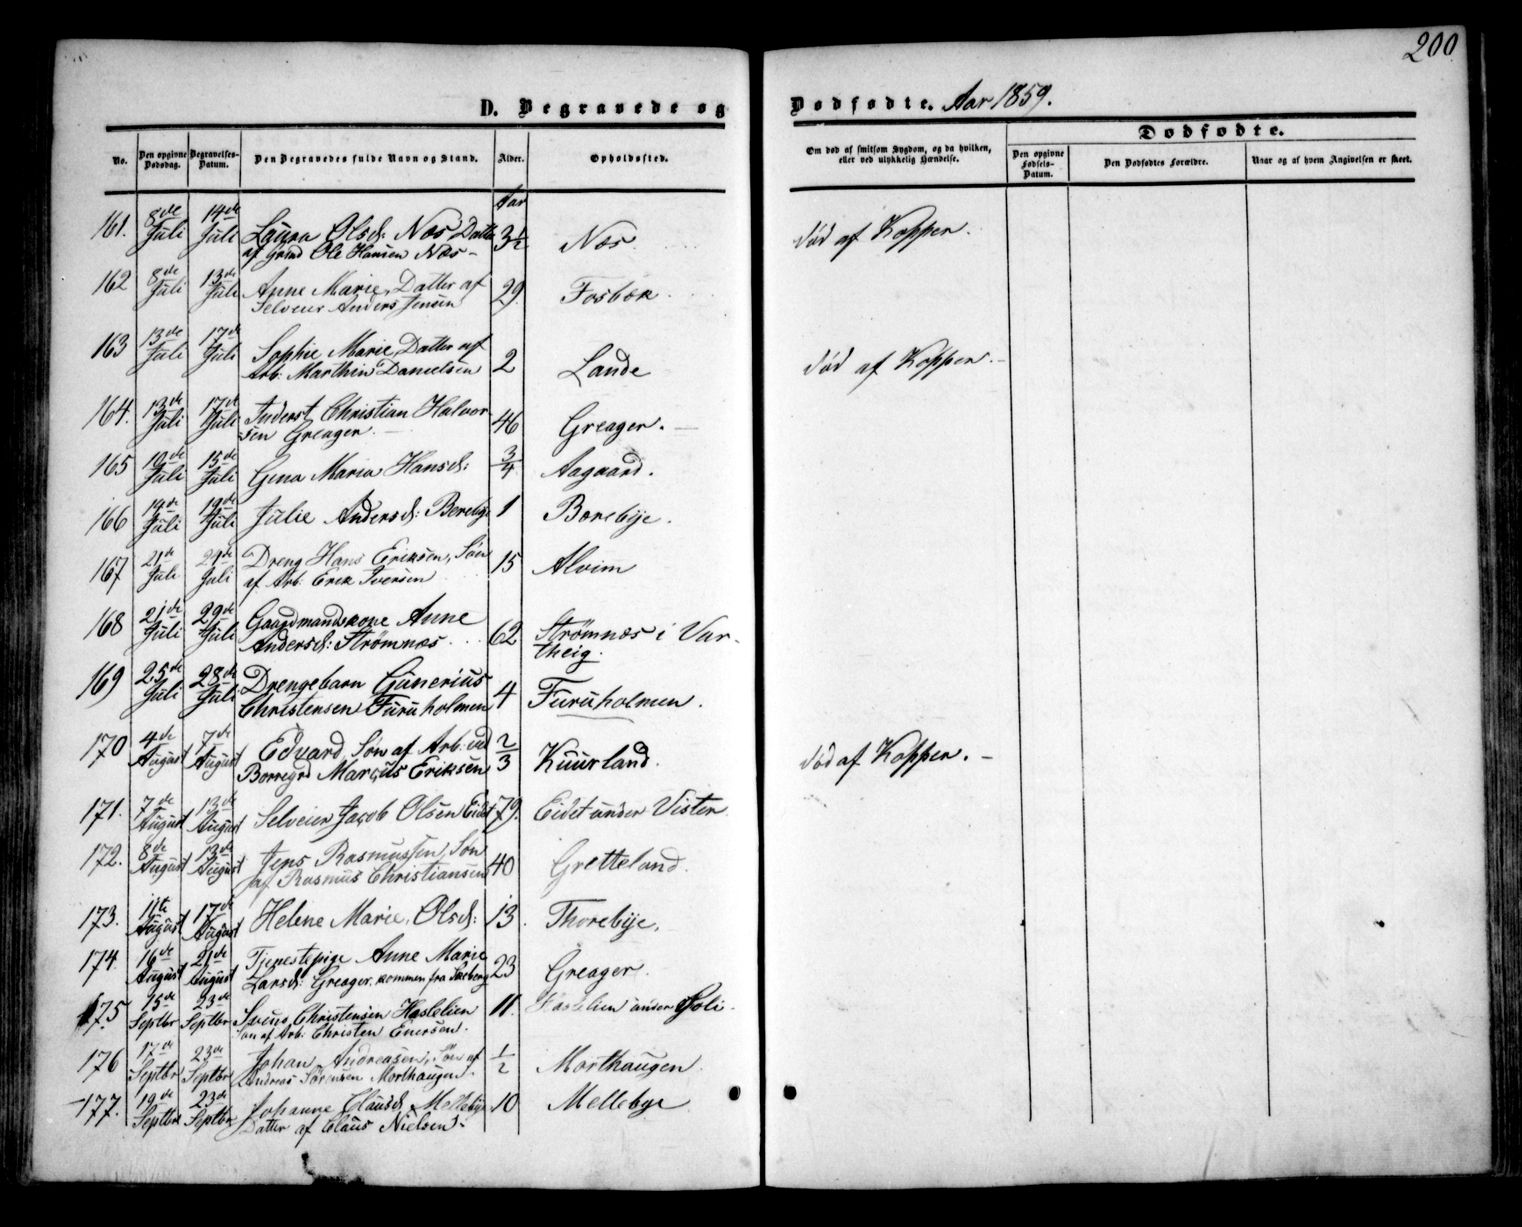 200
D. Begravede og Dødfødte. Aar 1859.
Dødfødte.
No. Den opgivne Dødsdag. Begravelses-Datum. Den Begravedes fulde Navn og Stand. Alder. Opholdssted. Om død af smitsom Sygdom, og da hvilken, eller ved ulykkelig Hændelse. Den opgivne Fødsels-Datum. Den Dødfødtes Forældre. Naar og af hvem Angivelsen er skeet.
Aar
161. 8de Juli 14de Juli Laura Olsd: Næs Datter 3½ Næs. død af Kopper.
af Grmd Ole Hansen Næs -
162 8de Juli 13de Juli Anne Marie, Datter af 29. Fosbæk.
Selveier Anders Jensen
163 13de Juli 17de Juli Sophie Marie, Datter af 2 Lande død af Kopper. -
Arb. Marthin Danielsen
164. 13de Juli 17de Juli Inderst Christian Halvor- 46 Greager.
sen Greager.
165 10de Juli 15de Juli Gina Maria Hansd: 3/4 Aagaard.
166 19de Juli 19de Juli Julie Andersd: Borebye 1 Borebye.
167 21de Juli 24de Juli Dreng Hans Eriksen, Søn 15 Alvim
af Arb. Erik Iversen
168 21de Juli 29de Juli Gaardmandskone Anne 62 Strømnæs i Var-
Andersd: Strømnæs. theig.
169 25de Juli 28de Juli Drengebarn Gunerius 4 Furuholmen.
Christensen Furuholmen
170 4de August 7de August Edvard, Søn af Arb. ved 2/3 Kuurland. død af Kopper. -
Borregrd Marcus Eriksen
171. 7de August 13de August Selveier Jacob Olsen Eidet 79. Eidet under Vister.
172. 8de August 13de August Jens Rasmussen, Søn 40 Gretteland.
af Rasmus Christiansen
173. 11te August 17de August Helene Marie, Olsd: 13. Thorebye.
174. 16de August 21de August Tjenestepige Anne Marie 23 Greager.
Larsd: Greager, kommen fra Skeberg
175 15de Septbr 23de Septbr Svens Christensen Hastelien 11. Hastelien under Soli.
Søn af Arb. Christen Enersen.
176 17de Septbr 23de Septbr Johan Andreasen, Søn af ½ Morthaugen.
Andreas Sørensen Morthaugen.
177. 19de Septbr 23de Septbr Johanne Clausd: Mellebye 10 Mellebye
Datter af Claus Nielsen. -